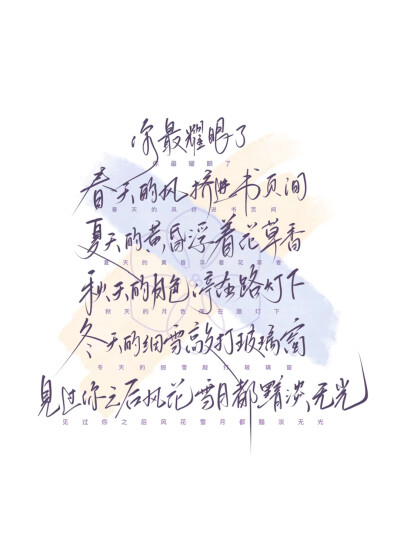 你最耀眼了
你最耀眼了
春天的风挤进书页间
春天的风挤进书页间
夏天的黄昏浮着花草香
夏天的黄昏浮着花草香
秋天的月色浮在路灯下
秋天的月色浮在路灯下
冬天的细雪敲打玻璃窗
冬天的细雪敲打玻璃窗
见过你之后风花雪月都黯淡无光
见过你之后风花雪月都黯淡无光